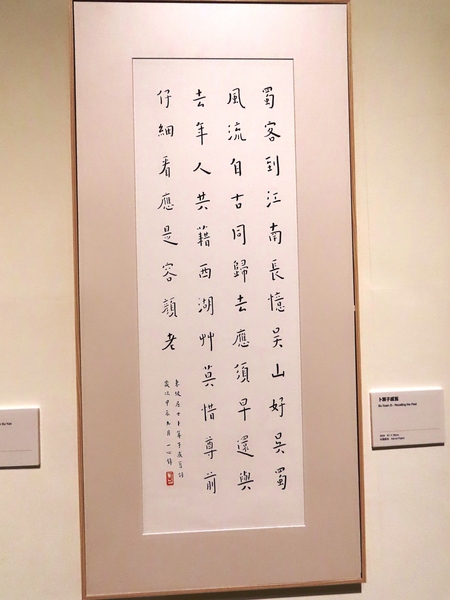 蜀客到江南長憶吳山好吳蜀
風流自古同歸去應須早還與
去年人共藉西湖艸莫惜尊前
仔細看應是容顏老
東坡居士卜算子感舊
歲次甲辰 月一心錄
卜算子感舊
Bu Suan Zi - Recalling the Past